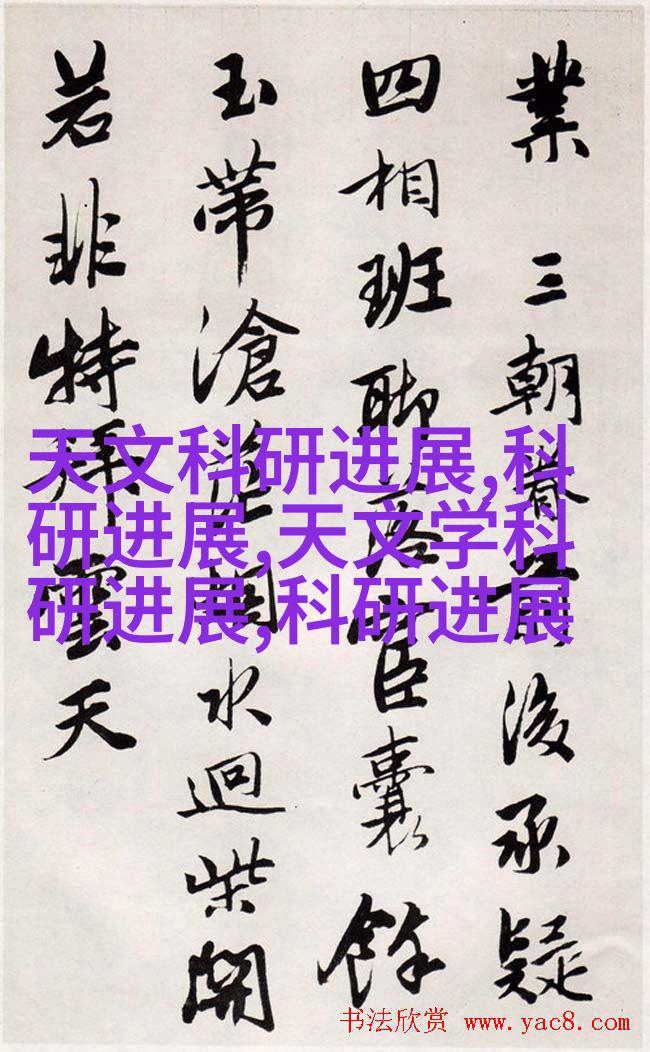 業 三朝後承疑
四相班聯臣囊餘
玉帶滄水迴柴關
若非特拜雲天
天文科研进展,科
研进展,天文学科
研进展,科研进展
书法欣赏 www.yac8.com